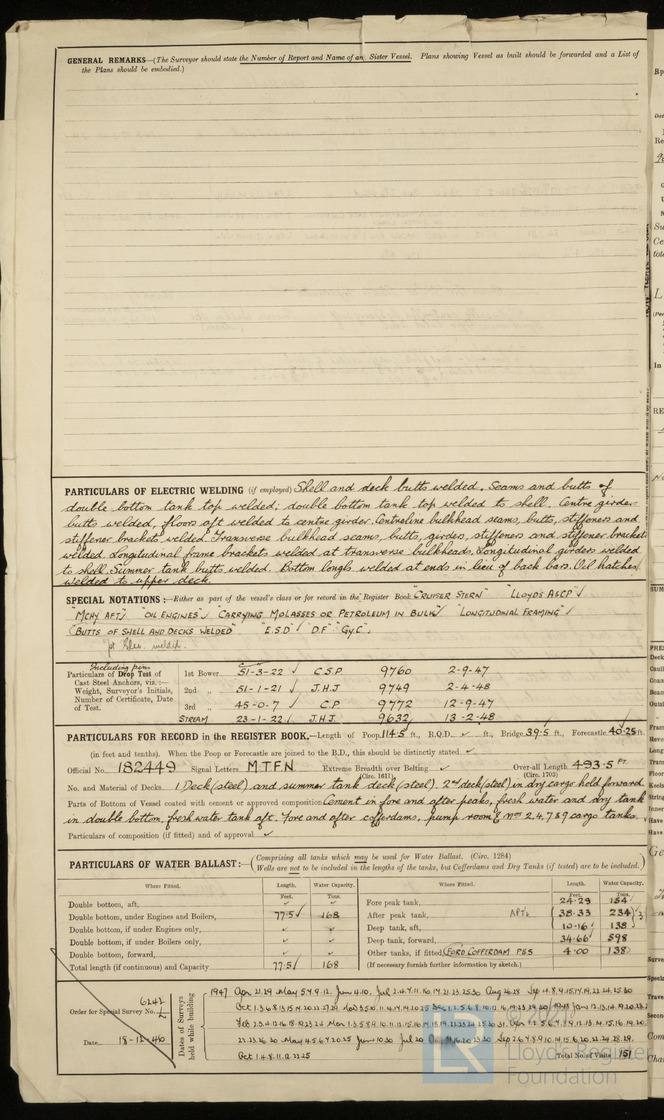 GENERAL REMARKS—(The Surveyor should state the Number of Report and Name of an Sister Vessel. Plans showing Vessel as built should be forwarded and a List of
the Plans should be embodied.)
PARTICULARS OF ELECTRIC WELDING (if employed) Shell and deck butts welded. Seams and butts of
double bottom tank top welded; double bottom tank top welded to shell. Centre girder
butts welded, floors aft welded to centre girder. Centreline bulkhead seams, butts, stiffeners and
stiffener brackets welded. Transverse bulkhead seams, butts, girders, stiffeners and stiffener bracket
welded. Longitudinal frame brackets welded at transverse bulkheads. Longitudinal girders welded
to shell. Summer tank butts welded. Bottom longls welded at ends in lieu of back bars. Oil hatches
welded to upper deck.
SPECIAL NOTATIONS:—Either as part of the vessel's class or for record in the Register Book "CRUISER STERN" "LLOYDS A&CP" √
"MCHY AFT" √ "OIL ENGINES" √ "CARRYING MOLASSES OR PETROLEUM IN BULK" √ "LONGITUDINAL FRAMING" √
"BUTTS OF SHELL AND DECKS WELDED" "E.S.D" √ "D.F" "GyC".
welded.
Including pin
Particulars of Drop Test of
Cast Steel Anchors, viz.:—
Weight, Surveyor's Initials,
Number of Certificate, Date
of Test.
1st Bower 51-3-22 √ C.S.P 9760 2-9-47
2nd „ 51-1-21 √ J.H.J 9749 2-4-48
3rd „ 45-0-7 √ C.P. 9772 12-9-47
STREAM 23-1-22 √ J.H.J. 9632 13-2-48
PARTICULARS FOR RECORD in the REGISTER BOOK.—Length of Poop 114.5 ft., R.Q.D. √ ft., Bridge 39.5 ft., Forecastle 40.25 ft.
(in feet and tenths). When the Poop or Forecastle are joined to the B.D., this should be distinctly stated √
Official No. 182449 Signal Letters M.T.F.N Extreme Breadth over Belting √ Over-all Length 493.5 FT.
(Circ. 1611) (Circ. 1703)
No. and Material of Decks 1 Deck (steel) and summer tank deck (steel). 2nd deck (steel) in dry cargo hold forward
Parts of Bottom of Vessel coated with cement or approved composition Cement in fore and after peaks, fresh water and dry tank
in double bottom, fresh water tank aft. Fore and after cofferdams, pump room & Nos 2,4,7 & 9 cargo tanks.
Particulars of composition (if fitted) and of approval √
PARTICULARS OF WATER BALLAST:—(Comprising all tanks which may be used for Water Ballast. (Circ. 1284)
Wells are not to be included in the lengths of the tanks, but Cofferdams and Dry Tanks (if tested) are to be included.)
Where Fitted. Length. Water Capacity. Where Fitted. Length. Water Capacity.
Feet. Tons. Feet. Tons.
Double bottom, aft, √ √ Fore peak tank, 24.29 184
Double bottom, under Engines and Boilers, 77.5 √ 168 After peak tank, 38.33 234
Double bottom, if under Engines only, √ √ Deep tank, aft, 10.16 138
Double bottom, if under Boilers only, √ √ Deep tank, forward, 34.66 898
Double bottom, forward, √ √ Other tanks, if fitted FORD COFFERDAM P&S 4.00 138
Total length (if continuous) and Capacity 77.5 √ 168 (If necessary furnish further information by sketch.)
Order for Special Survey No. 6242
Date 18-12-46
Dates of Surveys
held while building
1947
Total No. of Visits 151
LR
Lloyd's Register
Foundation